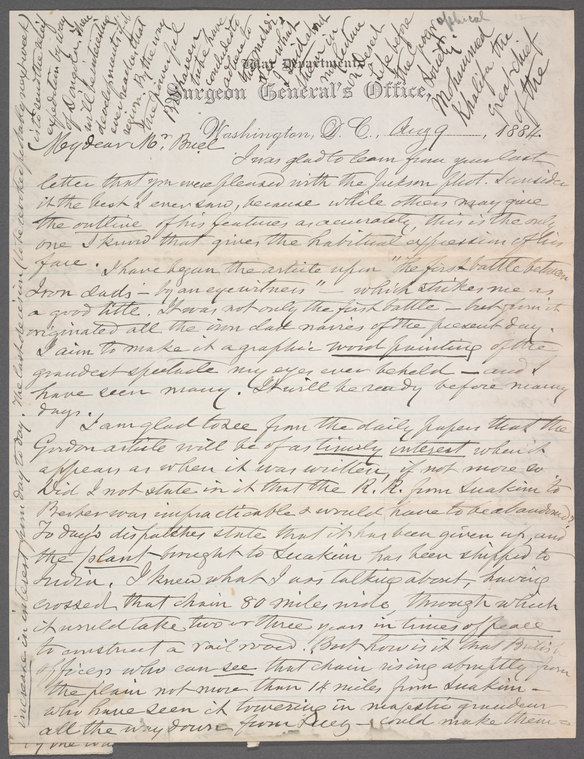 War Department,
Surgeon General's Office,
Washington, D.C., Aug 9, 1884.
My dear Mr. Buel
I was glad to learn from your last
letter that you were pleased with the Jackson phot. I consider
it the best I ever saw, because while others may give
the outline of his features as accurately, this is the only
one I know that gives the habitual expression of his
face. I have begun the article upon "the first battle between
Iron clads - by an eyewitness" - which strikes me as
a good title. It was not only the first battle - but from it
originated all the iron clad navies of the present day.
I aim to make it a graphic word painting of the
grandest spectacle my eyes ever beheld - and I
have seen many. It will be ready before many
days.
I am glad to see from the daily papers that the
Gordon article will be of as timely interest when it
appears as when it was written, if not more so
Did I not state in it that the R.R. from Suakim to
Berber was impracticable & would have to be abandoned?
To day's dispatches state that it has been given up, and
the plant brought to Suakim has been shipped to
India. I knew what I was talking about, having
crossed that chain 80 miles wide, through which
it would take two or three years in times of peace
to construct a rail road. But how is it that British
officers who can see that chain rising abruptly from
the plain not more than 14 miles from Suakim -
who have seen it towering in majestic grandeur
all the way down from Suez - could make them=
increase in interest from day to day. The last decision
expedition by way
of Dongola. There
will be
developments
ever heard of that
region. By the way
the powerful
to have
concluded to
return to
the
what
I said about
them in
my lecture
delivered
before
the Geographical
Society
Mohammed
Khalifa the
great chief
of the